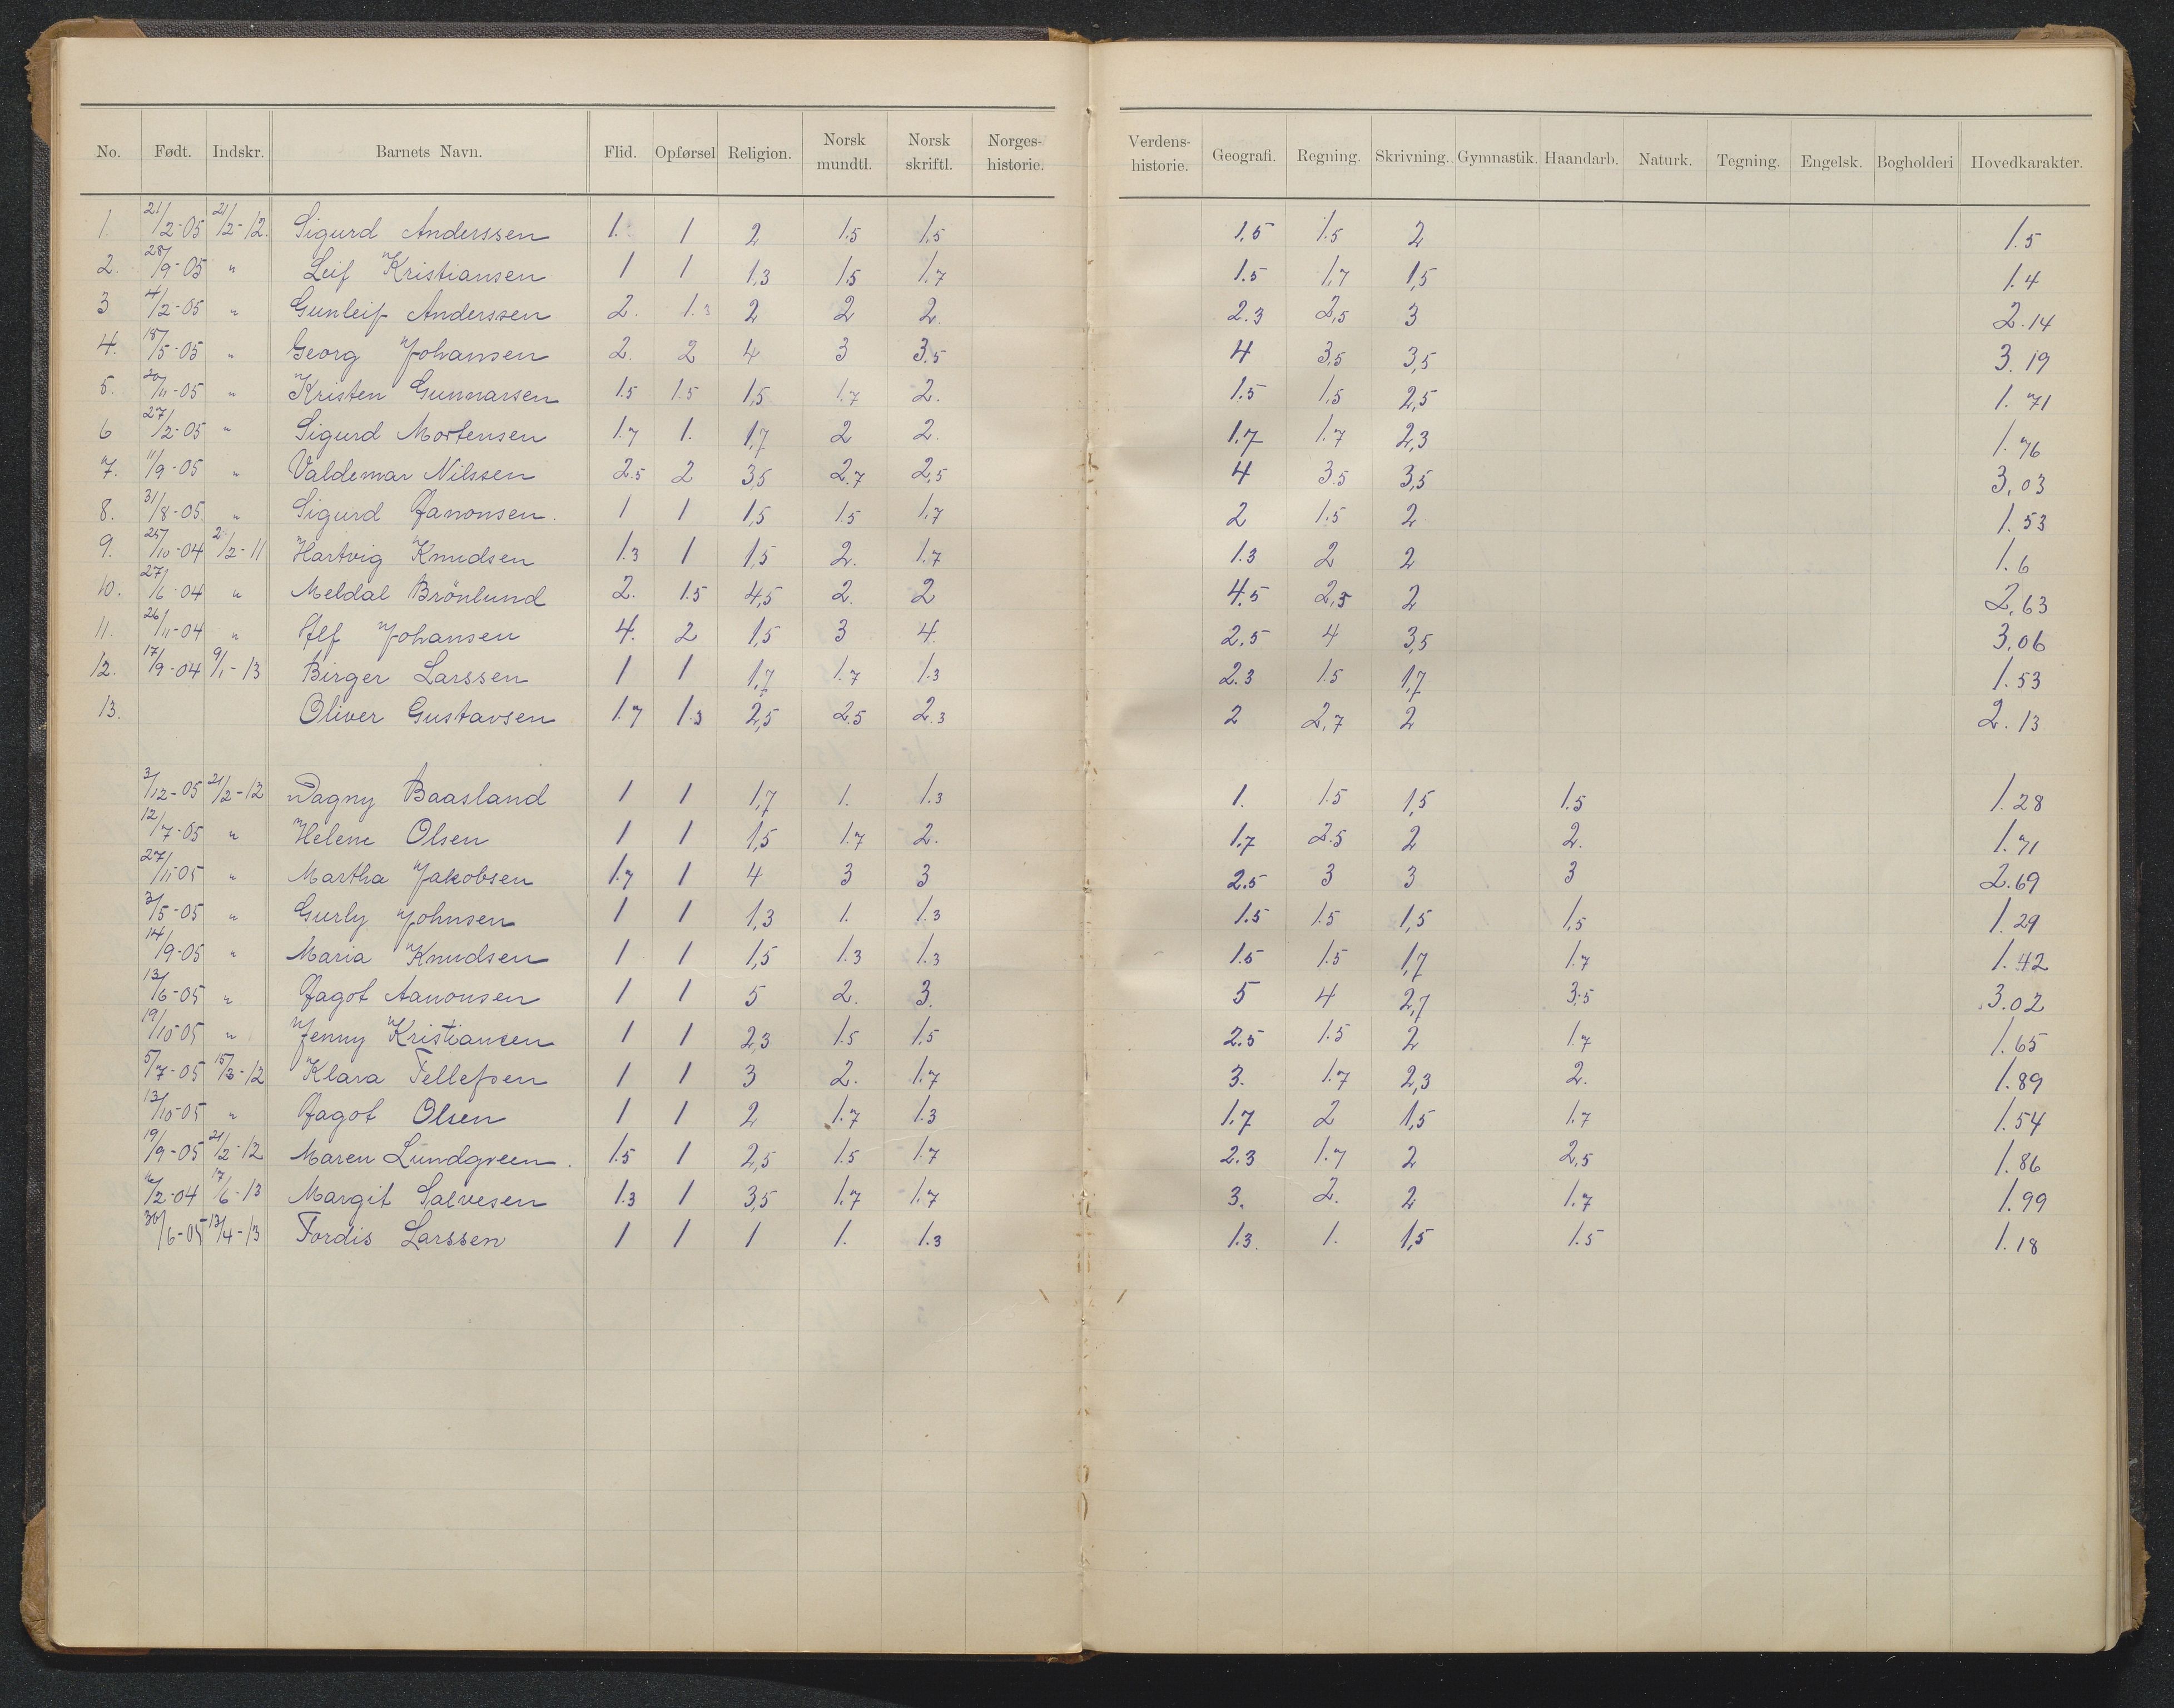 No. Født. Indskr. Barnets Navn. Flid. Opførsel Religion. Norsk mundtl. Norsk skriftl. Norges-historie. Verdens-historie. Geografi. Regning. Skrivning. Gymnastik. Haandarb. Naturk. Tegning. Engelsk. Bogholderi Hovedkarakter.
1. 21/2-05 21/2-12. Sigurd Anderssen 1. 1 2 1.5 1.5 1.5 1.5 2 1.5
2. 28/9-05 " Leif Kristiansen 1 1 1,3 1.5 1.7 1.5 1,7 1,5 1.4
3 4/2-05 " Gunleif Anderssen 2. 1.3 2 2 2. 2.3 2,5 3 2.14
4. 18/5-05 " Georg Johansen 2. 2 4 3 3.5 4 3,5 3,5 3.19
5. 20/11-05 " Kristen Gunnarsen 1.5 1.5 1,5 1.7 2. 1.5 1,5 2,5 1.71
6 27/2-05 " Sigurd Mortensen 1.7 1. 1,7 2 2. 1.7 1.7 2,3 1.76
7. 11/9-05 " Valdemar Nilssen 2.5 2 3,5 2.7 2,5 4 3.5 3,5 3,03
8. 31/8-05. " Sigurd Aanonsen. 1 1 1,5 1.5 1,7 2 1.5 2 1.53
9. 25/10-04 2/2-11 Hartvig Knudsen 1.3 1 1,5 2. 1.7 1.3 2 2 1.6
10. 27/6-04 " Meldal Brönlund 2. 1.5 4,5 2. 2 4.5 2,5 2 2,63
11. 26/11-04 " Alf Johansen 4. 2 1,5 3 4. 2.5 4 3,5 3,06
12. 17/9-04 9/1-13 Birger Larssen 1 1 1,7 1.7 1.3 2.3 1.5 1,7 1.53
13. Oliver Gustavsen 1.7 1.3 2,5 2.5 2.3 2 2,7 2 2.13
3/12-05 21/2-12 Dagny Baasland 1 1 1,7 1. 1.3 1. 1.5 1,5 1.5 1.28
12/7-05 " Helene Olsen 1 1 1,5 1.7 2. 1.7 2.5 2 2. 1.71
27/11-05 " Martha Jakobsen 1.7 1 4 3 3 2.5 3 3 3 2.69
3/5-05 " Gurly Johnsen 1 1 1,3 1. 1.3 1.5 1.5 1,5 1,5 1.29
14/9-05 " Maria Knudsen 1 1 1,5 1.3 1.3 1.5 1.5 1,7 1.7 1.42
13/6-05 " Aagot Aanonsen 1 1 5 2. 3. 5 4 2,7 3.5 3.02
19/10-05 " Jenny Kristiansen 1 1 2,3 1.5 1.5 2.5 1.5 2 1.7 1.65
5/7-05 15/3-12 Klara Tellefsen 1 1 3 2. 1.7 3. 1.7 2,3 2. 1.89
13/10-05 " Aagot Olsen 1 1 2 1.7 1.3 1.7 2 1,5 1.7 1.54
19/9-05 21/2-12 Maren Lundgreen. 1.5 1 2,5 1.5 1.7 2.3 1.7 2 2,5 1.86
16/2-04 17/6-13 Margit Salvesen 1.3 1 3,5 1.7 1.7 3. 2. 2 1.7 1.99
30/6-05 13/4-13 Tordis Larssen 1 1 1 1. 1.3 1.3. 1. 1,5 1.5 1.18